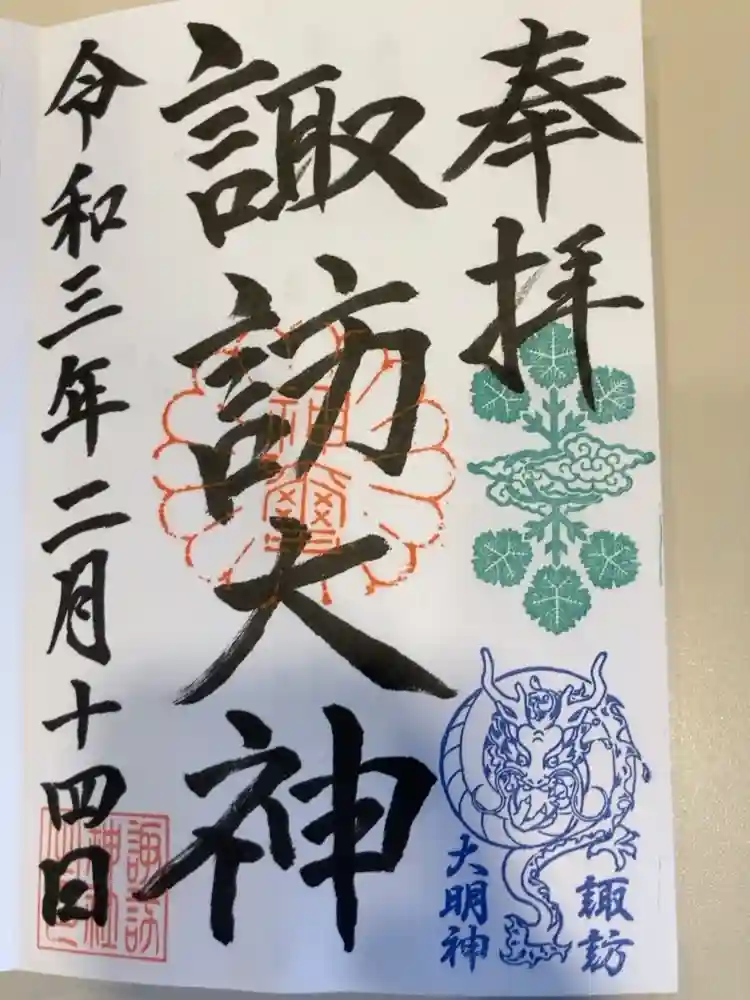 奉拝
諏訪大神
令和三年二月十四日
諏訪
大明神
諏訪
神社